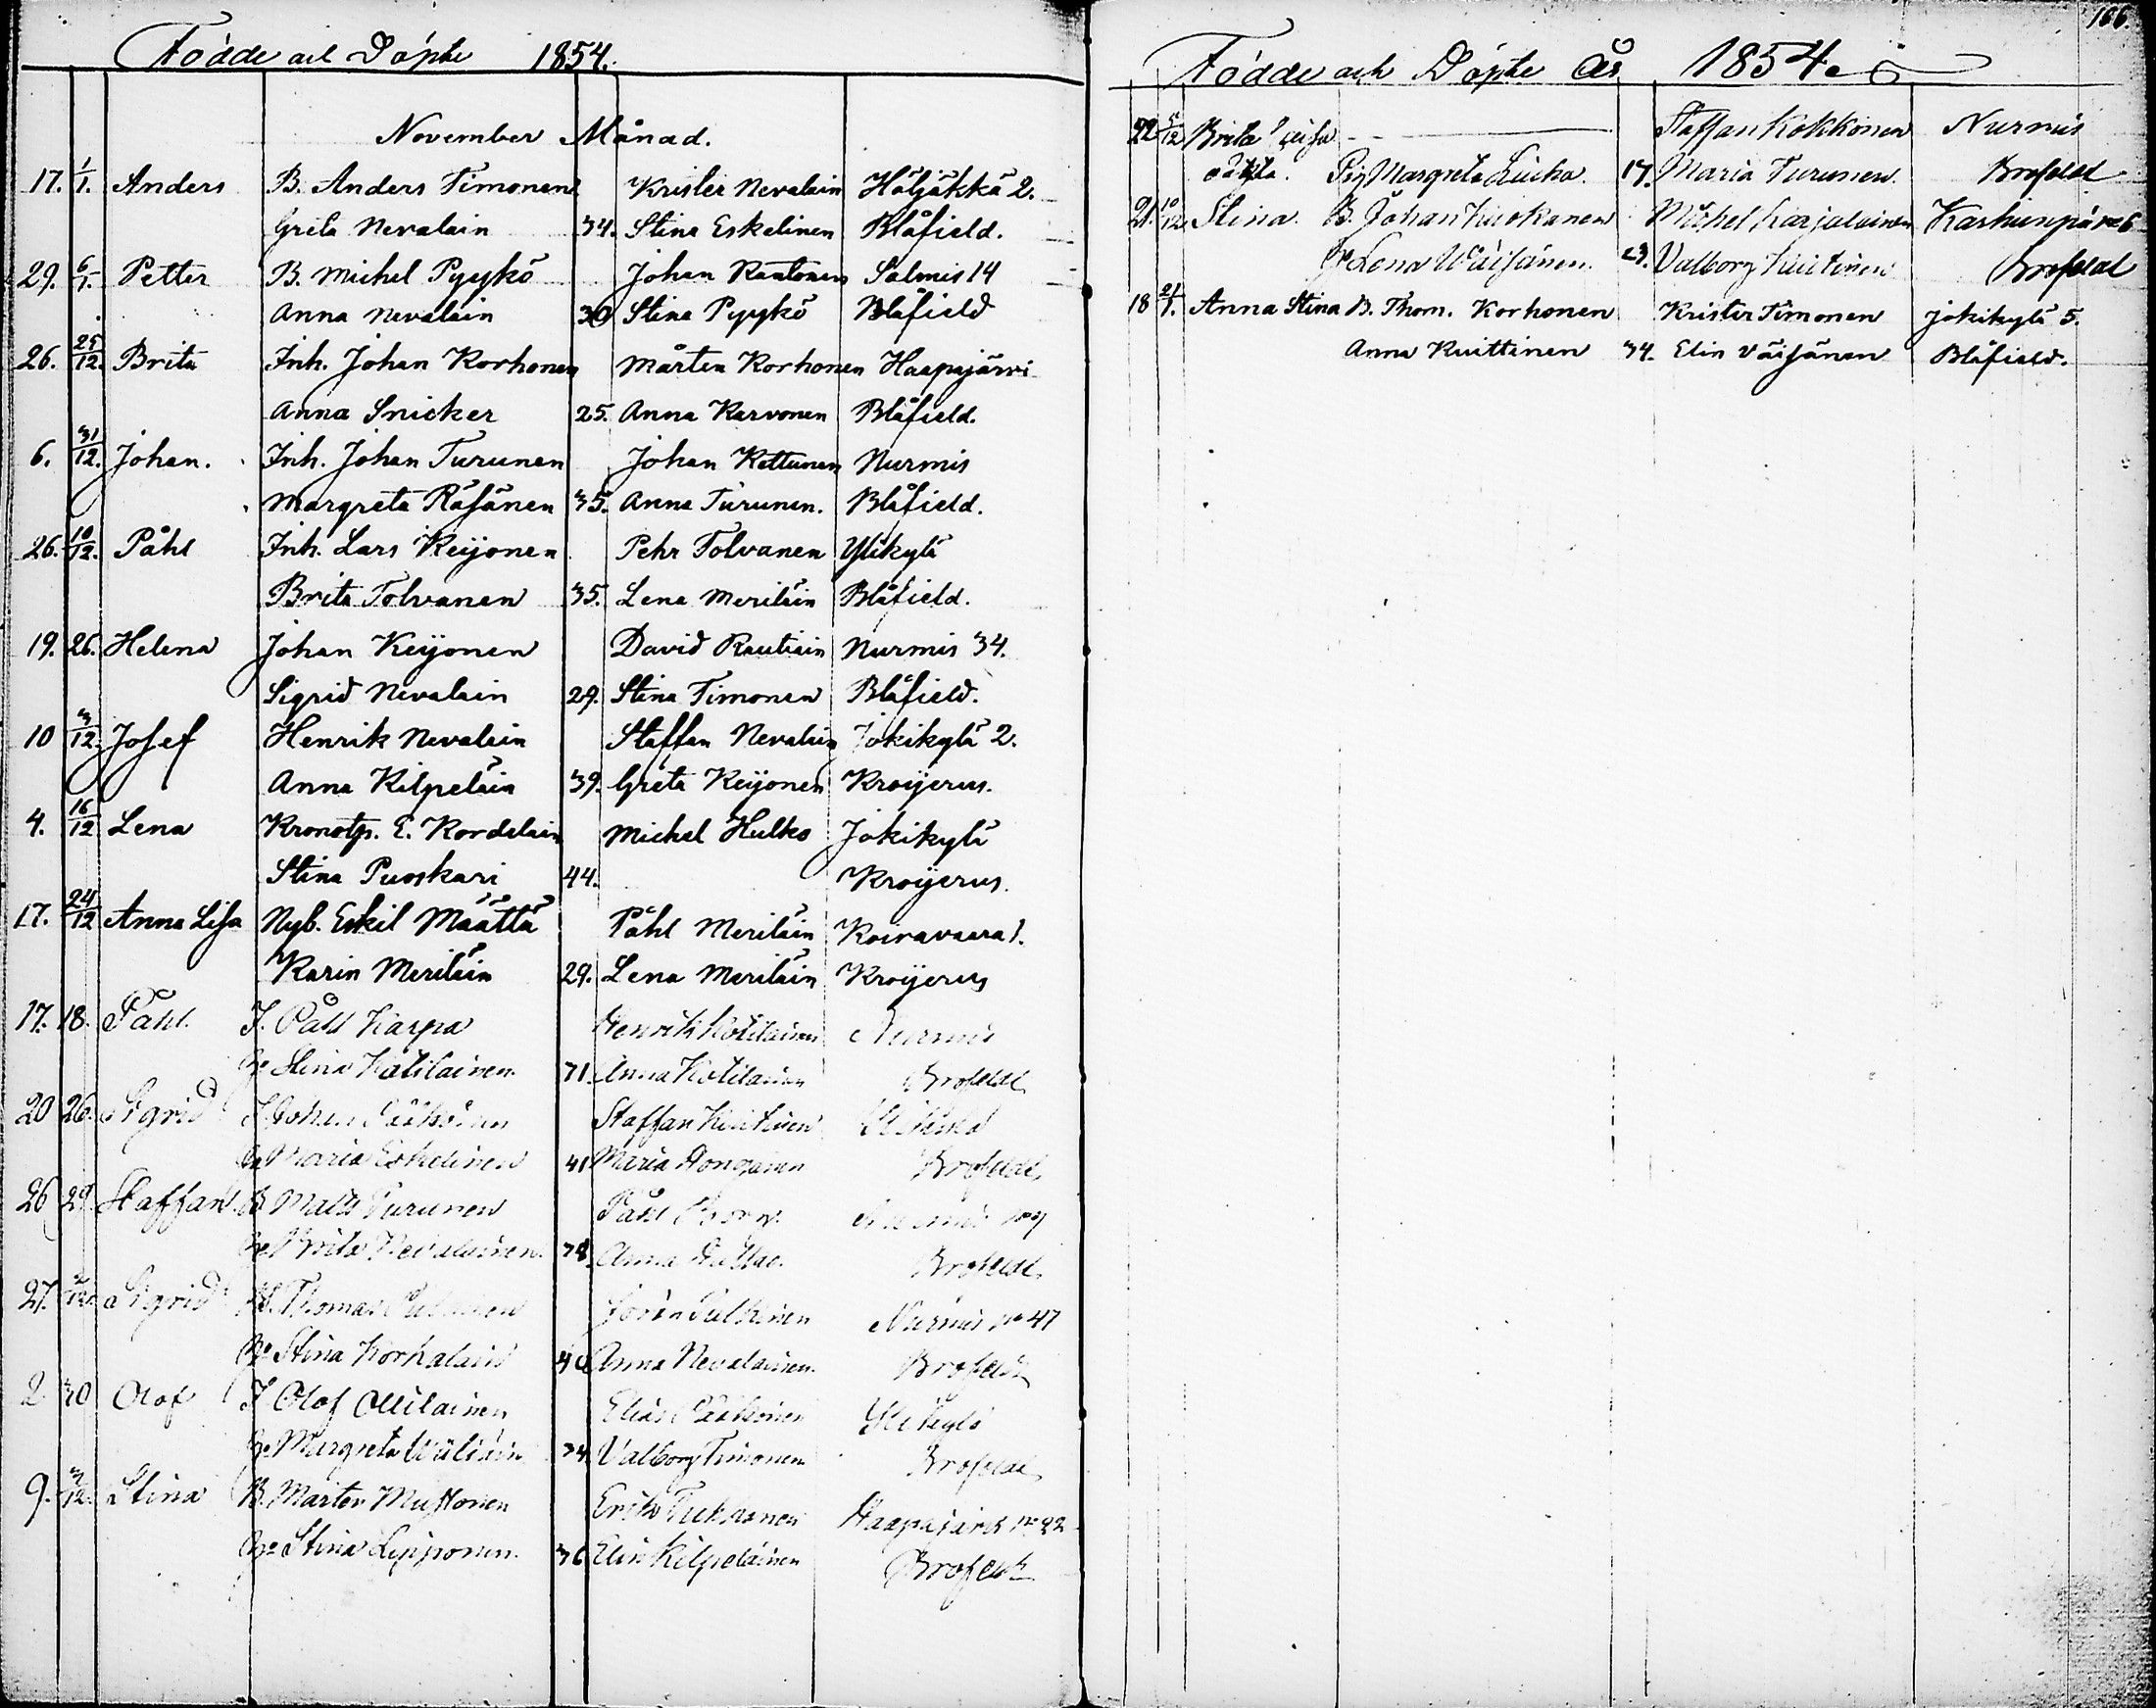 Födde och Döpte 1854.
November Månad.
17. 1/1. Anders B. Anders Timonen Krister Nevalain Höljäkkä 2.
Greta Nevalain 34. Stina Eskelinen Blåfield.
29. 6/1. Petter B. Michel Pyykö Johan Rautonen Salmis 14
Anna Nevalain 30 Stina Pyykö Blåfield
26. 25/12. Brita Inh. Johan Korhonen Mårten Korhonen Haapajärvi
Anna Snicker 25. Anna Karvonen Blåfield.
6. 31/12. Johan. Inh. Johan Turunen Johan Kettunen Nurmis
Margreta Räsänen 35. Anna Turunen. Blåfield.
26. 10/12. Påhl Inh. Lars Keijonen Pehr Tolvanen Ylikylä
Brita Tolvanen 35. Lena Meriläin Blåfield.
19. 26. Helena Johan Keijonen David Rautiain Nurmis 34.
Sigrid Nevalain 29. Stina Timonen Blåfield.
10 3/12. Josef Henrik Nevalain Staffan Nevalain Jokikylä 2.
Anna Kilpeläin 39. Greta Keijonen Kroijerus.
4. 16/12 Lena Kronotp. E. Kordelain Michel Hulko Jokikylä
Stina Puoskari 44. Kroijerus.
17. 24/12 Anna Lisa Nyb. Eskil Määttä Påhl Meriläin Koivavaara 1.
Karin Meriläin 29. Lena Meriläin Kroijerus
17. 18. Påhl. I. Påhl Karpa Henrik Kotilainen Nurmis
Hu Stina Kotilainen. 31. Anna Kotilainen Brofeldt
20 26. Sigrid I Johan Staffan Kuitinen
Hu Maria Eskelinen 41 Maria Brofeldt
26 29 Staffan B. Matts Turunen Påhl
Hu Brita Nevalainen. 38. Anna Brofeldt
27. Sigrid B. Thomas Nurmis No 47
Hu Stina Korkalain 40 Anna Nevalainen. Brofeldt
2 30 Olof I Olof Ollilainen Elias Pääkkönen Ylikylä
Hu Margreta 34 Valborg Timonen Brofeldt
9. 3/12. Stina B. Mårten Mustonen Erik Haapajärvi No 22
Hu Stina Lipponen. 36 Elin Kilpeläinen Brofeldt
166.
Födde och Döpte År 1854.
22 5/12 Brita Lisa Staffan Kokkonen Nurmis
oäkta. Pig Margreta 17. Maria Turunen. Brofeldt
21. 10/12 Stina. B. Johan Michel Karjalainen 6
Hu Lena Väisänen. 29. Valborg Kuitinen Brofeldt
18 21/1. Anna Stina B. Thom. Korhonen Krister Timonen Jokikylä 5.
Anna Kuittinen 34. Elin Väisänen Blåfield.